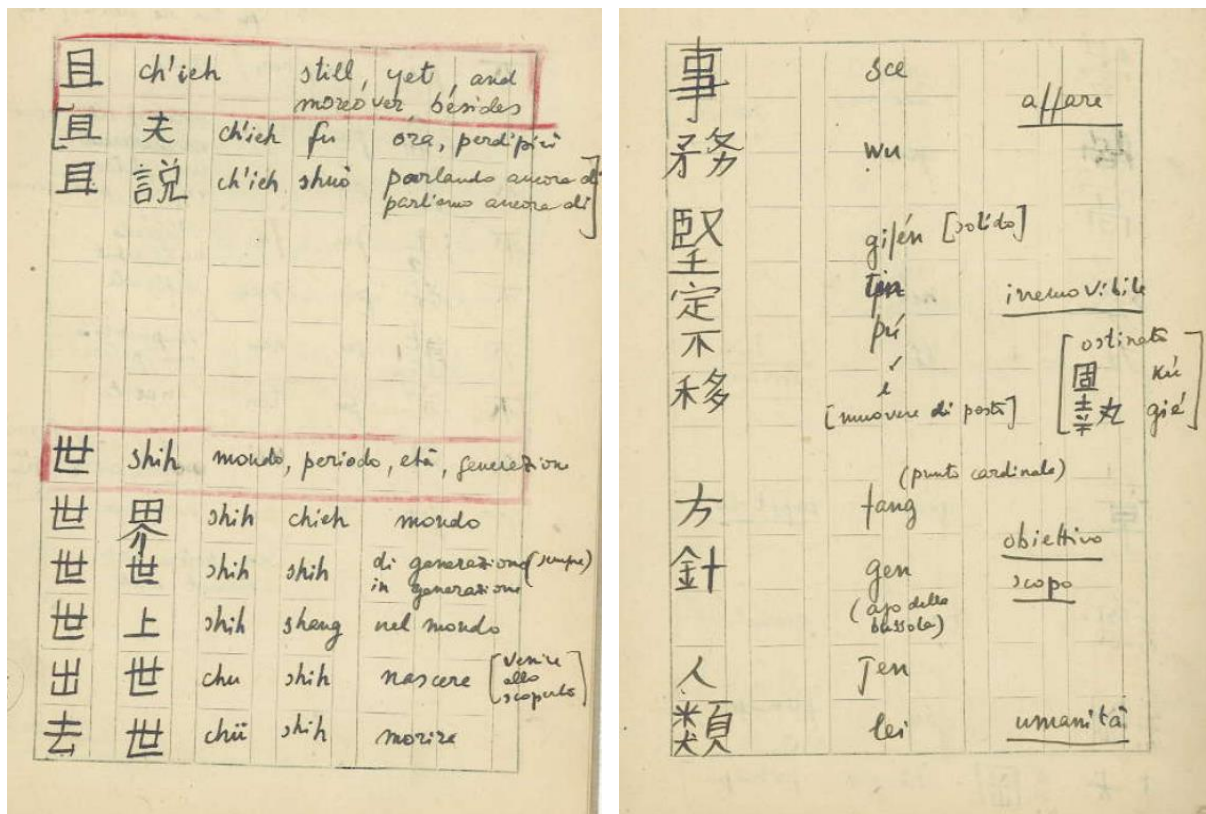 且 ch'ieh still, yet, and
moreover, besides
[且 夫 ch'ieh fu ora, perdipiù
且 説 ch'ieh shuō parlando ancora di
parliamo ancora di]
世 shih mondo, periodo, età, generazion
世 界 shih chieh mondo
世 世 shih shih di generazione (sempre)
in generazione
世 上 shih shang nel mondo
出 世 chu shih nascere [venire
allo
scoperto]
去 世 chü shih morire
事 sce
affare
務 wu
堅 gièn [solido]
定 tin irremovibile
不 pú
移 í
[muovere di posto]
[ostinato
固 kú
執 gié]
(punto cardinale)
方 fang
obiettivo
針 gen scopo
(ago della
bussola)
人 Jen
類 lei umanità